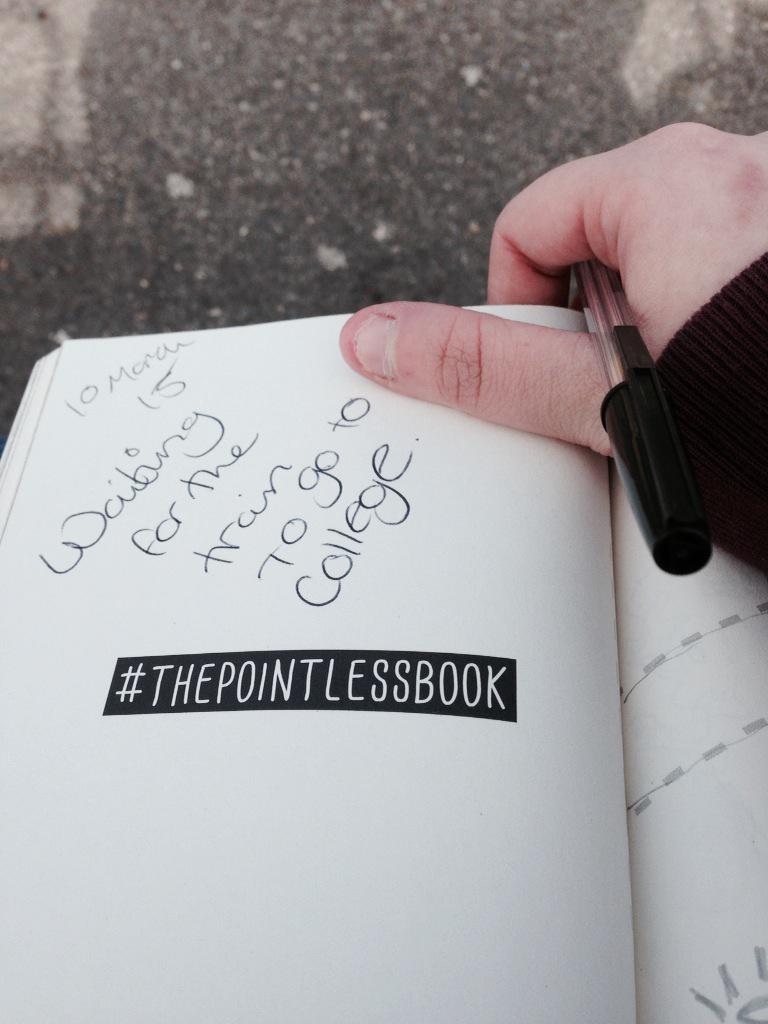 10 March
15
Waiting
for the
train
To go to
College.
#THEPOINTLESSBOOK